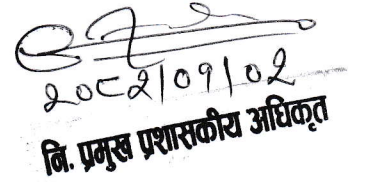 २०८२/०१/०२
नि. प्रमुख प्रशासकीय अधिकृत